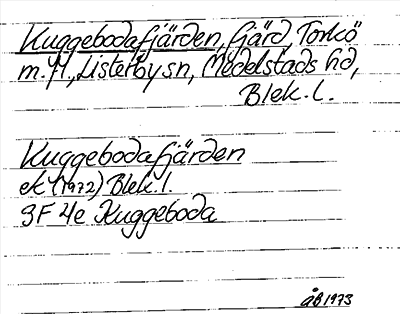 Kuggebodafjärden, fjärd, Torkö
m.fl., Listerby sn, Medelstads hd,
Blek. l.
Kuggebodafjärden
ek (1972) Blek. l.
3F 4e Kuggeboda
åB 1973